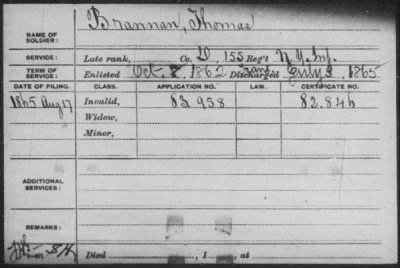 NAME OF SOLDIER: Brannan, Thomas
SERVICE: Late rank, Co. D, 155 Reg't N.Y. Inf.
TERM OF SERVICE: Enlisted Oct. 8, 1862 Discharged July 3, 1865
DATE OF FILING. CLASS. APPLICATION NO. LAW. CERTIFICATE NO.
1865 Aug 17 Invalid, 83 958 82.846
Widow,
Minor,
ADDITIONAL SERVICES:
REMARKS:
Died , 1 , at